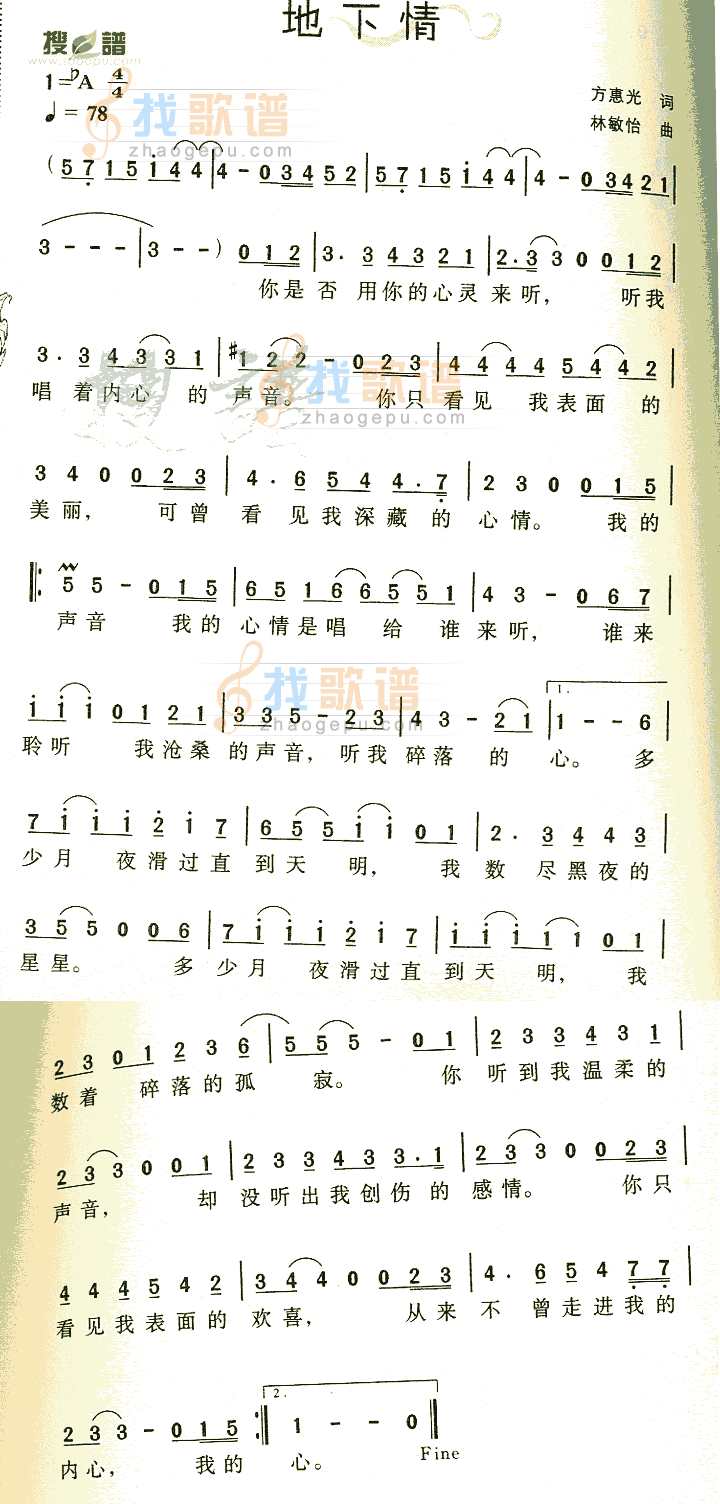 地下情
搜谱
www.sooopu.com
1=♭A 4/4
♩=78
找歌谱
zhaogepu.com
方惠光 词
林敏怡 曲
(5 7 1 5 i 4 4 | 4 - 0 3 4 5 2 | 5 7 1 5 i 4 4 | 4 - 0 3 4 2 1 |
3 - - - | 3 - - ) 0 1 2 | 3. 4 3 2 1 | 2. 3 3 0 0 1 2 |
你是否 用你的心灵来听， 听我
3. 3 4 3 3 1 | #1 2 2 - 0 2 3 | 4 4 4 4 5 4 4 2 |
唱着内心 的 声音。 你只看见 我表面 的
找歌谱
zhaogepu.com
3 4 0 0 2 3 | 4. 6 5 4 4. 7 | 2 3 0 0 1 5 |
美丽， 可曾 看见我深藏的心情。 我的
|: 5 5 - 0 1 5 | 6 5 1 6 6 5 5 1 | 4 3 - 0 6 7 |
声音 我的心情是唱 给 谁来听， 谁来
找歌谱
zhaogepu.com
i i i 0 1 2 1 | 3 3 5 - 2 3 | 4 3 - 2 1 | 1. 1 - - 6 |
聆听 我沧桑的声音，听我碎落 的 心。 多
7 i i i 2 i 7 | 6 5 5 i i 0 1 | 2. 3 4 4 3 |
少月 夜滑过直到天 明， 我数 尽黑夜的
3 5 5 0 0 6 | 7 i i i 2 i 7 | i i i i i 0 1 |
星星。 多少月 夜滑过直到天 明， 我
2 3 0 1 2 3 6 | 5 5 5 - 0 1 | 2 3 3 4 3 1 |
数着 碎落的孤 寂。 你听到我温柔的
2 3 3 0 0 1 | 2 3 3 4 3 3. 1 | 2 3 3 0 0 2 3 |
声音， 却没听出我创伤的感情。 你只
4 4 4 5 4 2 | 3 4 4 0 0 2 3 | 4. 6 5 4 7 7 |
看见我表面的欢喜， 从来不 曾走进我的
2 3 3 - 0 1 5 :| 2. 1 - - 0 |
内心， 我的 心。 Fine